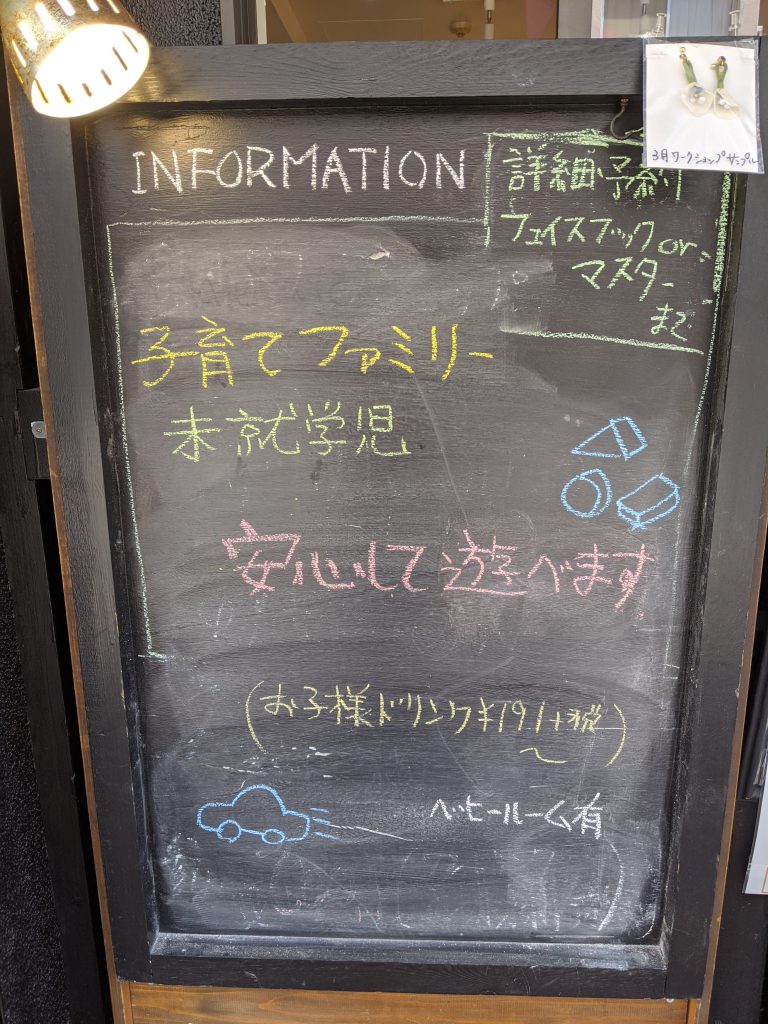 3月ワークショップサンプル
INFORMATION
詳細・予約
フェイスブック or
マスター
まで
子育てファミリー
未就学児
安心して遊べます
(お子様ドリンク¥191+税〜)
ベビールーム有